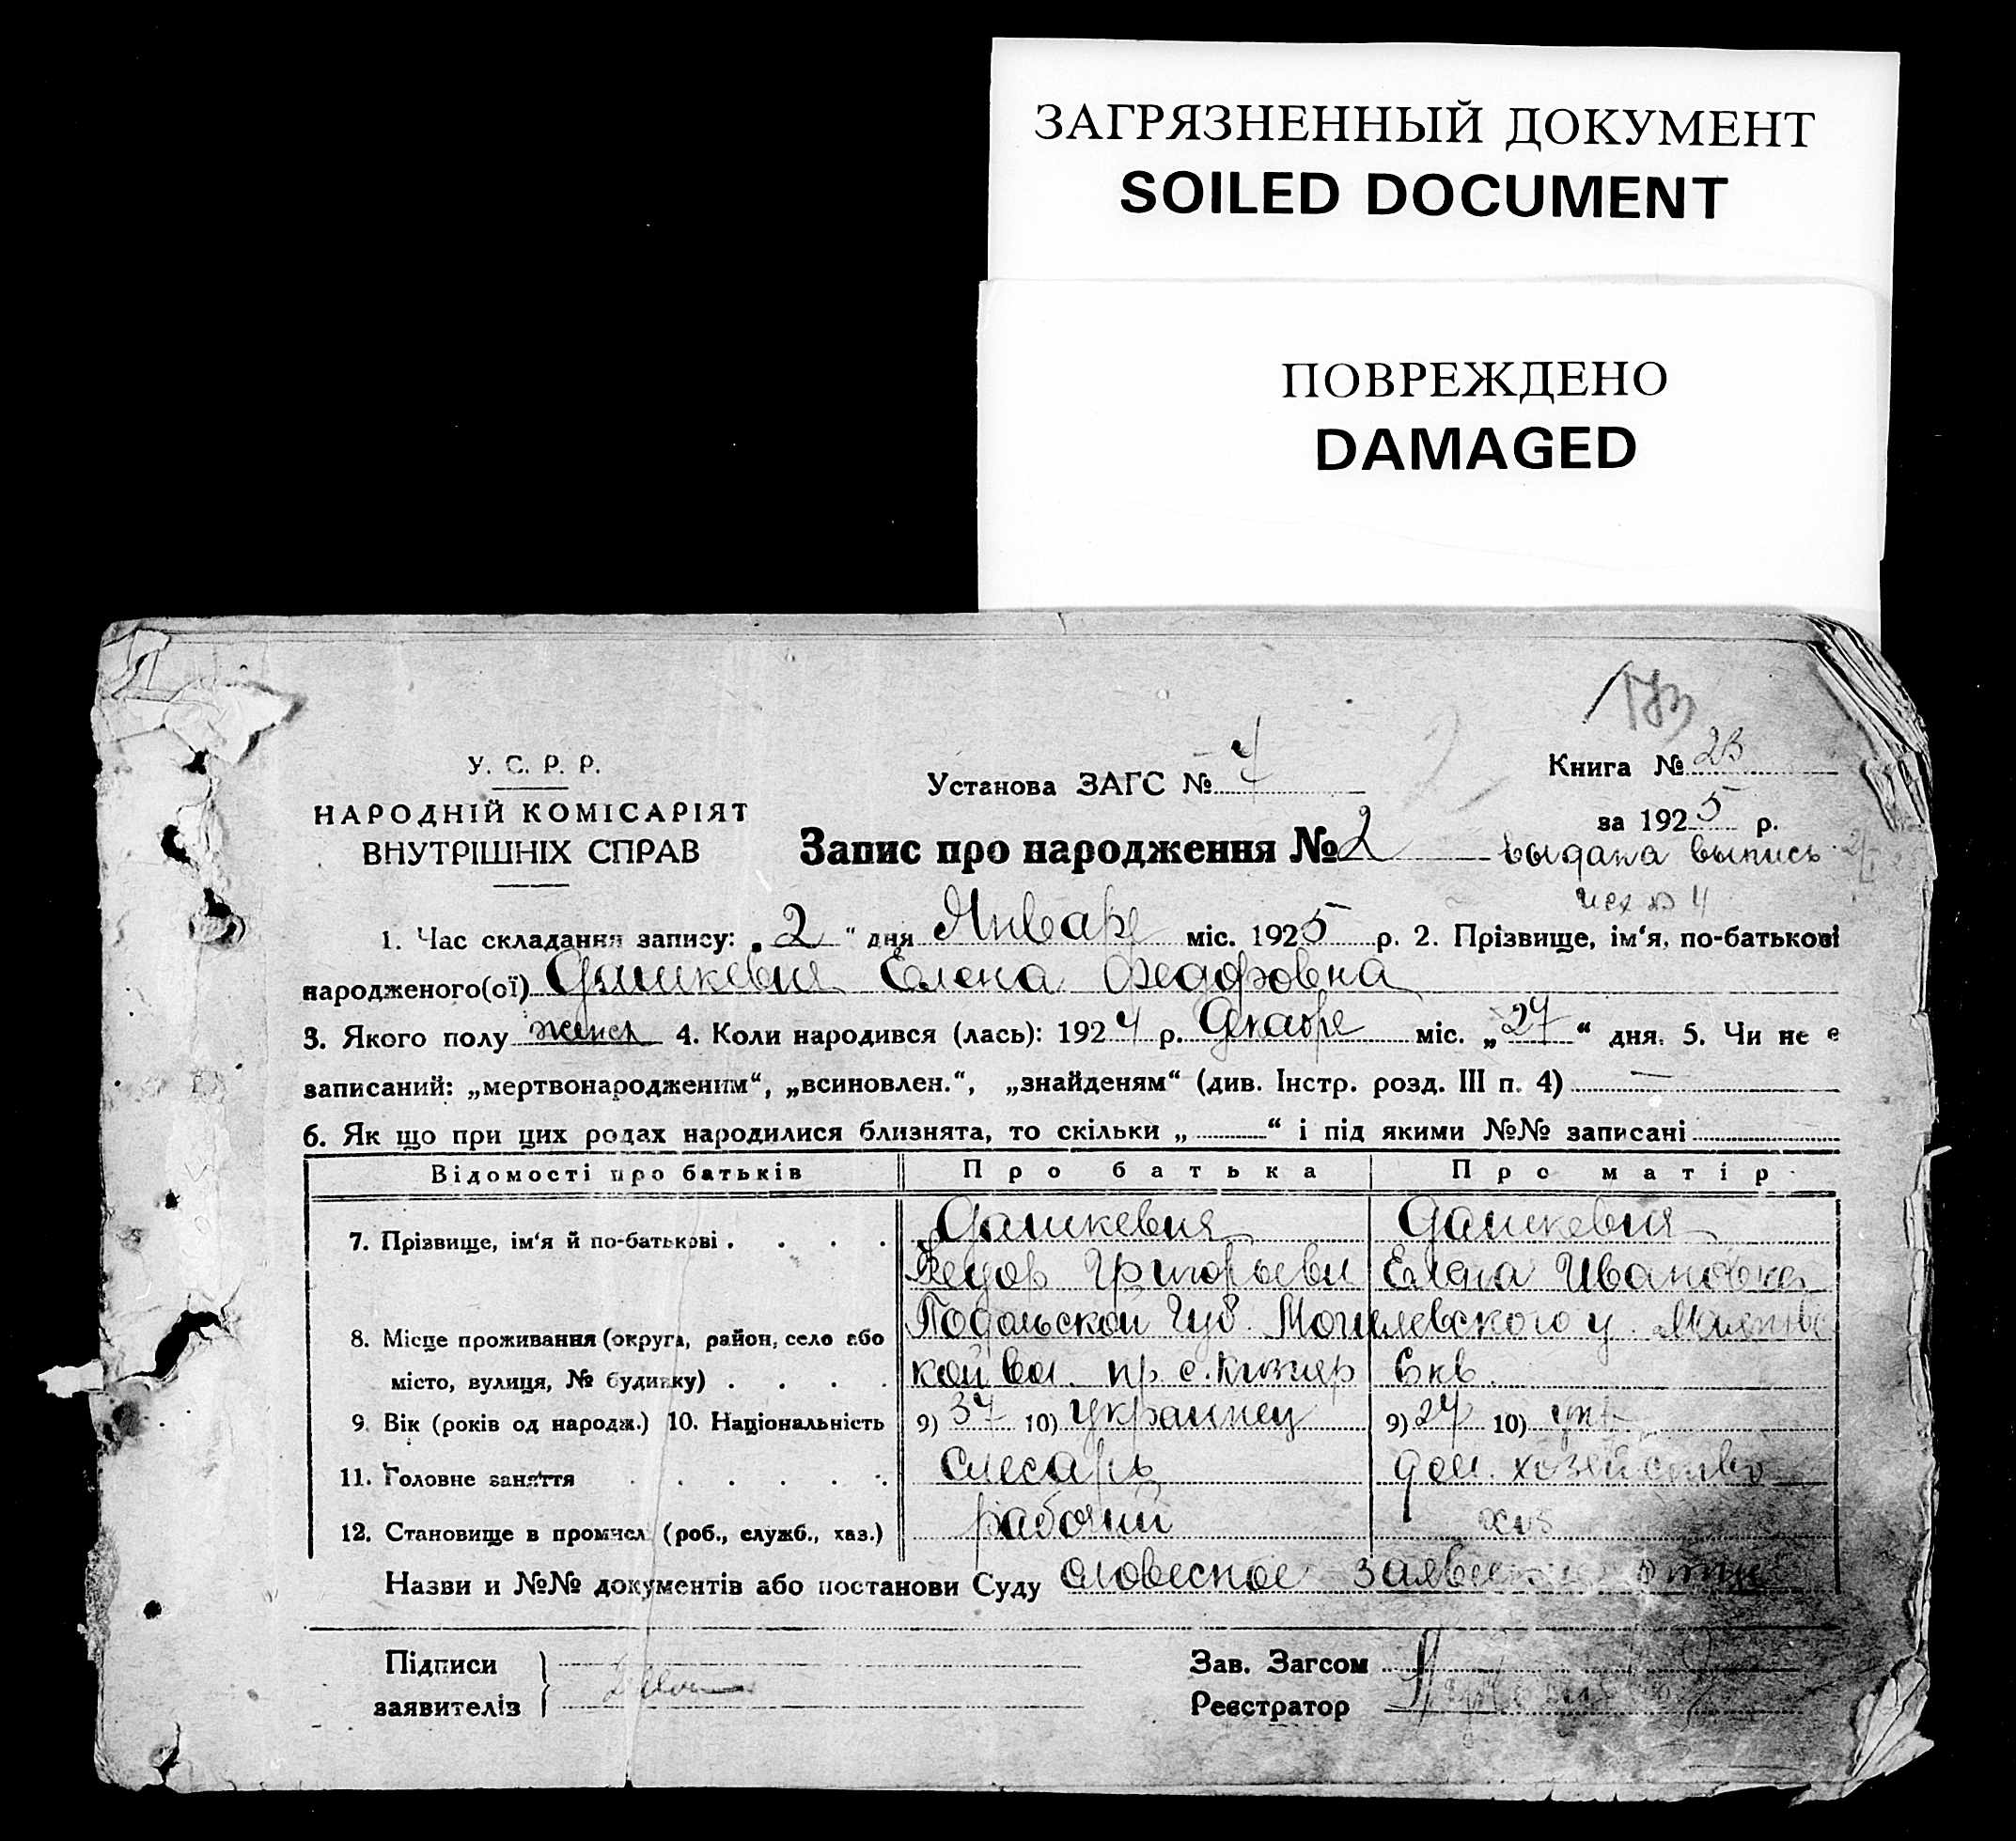 ЗАГРЯЗНЕННЫЙ ДОКУМЕНТ
SOILED DOCUMENT
ПОВРЕЖДЕНО
DAMAGED
У. С. Р. Р.
НАРОДНІЙ КОМІСАРІЯТ
ВНУТРІШНІХ СПРАВ
Установа ЗАГС № 4
Запис про народження № 2
Книга № 23
за 1925 р.
выдана выпись
исх № 4
1. Час складання запису: „ 2 “ дня Январе міс. 1925 р. 2. Прізвище, ім‘я, по-батькові
народженого(ої) Дашкевич Елена Федоровна
3. Якого полу женск 4. Коли народився (лась): 1924 р. Декабре міс. „ 27 “ дня. 5. Чи не є
записаний: „мертвонародженим“, „всиновлен.“, „знайденям“ (див. Інстр. розд. III п. 4) —
6. Як що при цих родах народилися близнята, то скільки „ “ і під якими №№ записані
Відомості про батьків Про батька Про матір
7. Прізвище, ім‘я й по-батькові Дашкевич Дашкевич
Федор Григорьеви Елена Ивановна
8. Місце проживання (округа, район, село або Подольской Губ. Могилевского у.
місто, вулиця, № будинку) кой вол. пр. с.
9. Вік (років од народж.) 10. Національність 9) 37 10) Украинец 9) 27 10) укр
11. Головне заняття Слесарь дом. хозяйство
12. Становище в промисл. (роб., служб., хаз.) рабочий
Назви и №№ документів або постанови Суду словесное заявление отца
Підписи Зав. Загсом
заявителів Реєстратор